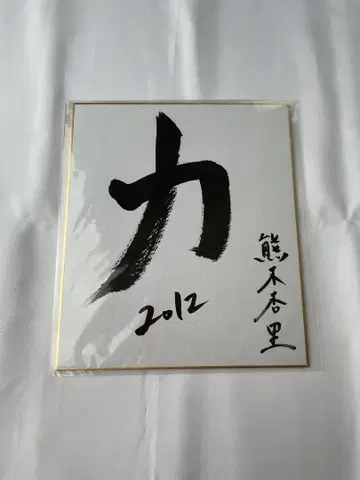 力
2012
熊木杏里